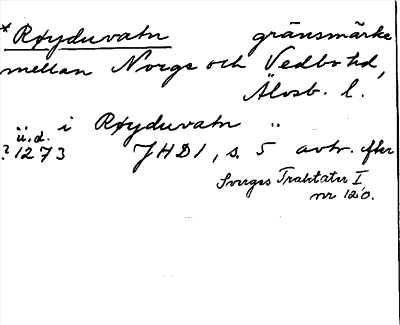 * Røyduvatn gränsmärke
mellan Norge och Vedbo hd,
Älvsb. l.
i Røyduvatn ..
ü.d.
? 1273 JHD1, s. 5 avtr. efter
Sverges Traktater I
nr 120.